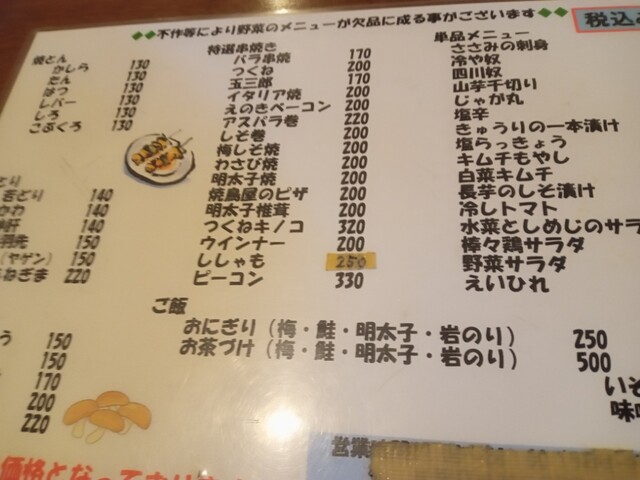 ◆◆不作等により野菜のメニューが欠品に成る事がございます◆◆
税込み
焼とん
かしら 130
たん 130
はつ 130
レバー 130
しろ 130
こぶくろ 130
とり
若どり 140
かわ 140
肝 140
羽先 150
(ヤゲン) 150
ねぎま 220
特選串焼き
バラ串焼 170
つくね 200
玉三郎 170
イタリア焼 200
えのきベーコン 200
アスパラ巻 220
しそ巻 200
梅しそ焼 200
わさび焼 200
明太子焼 200
焼鳥屋のピザ 200
明太子椎茸 200
つくねキノコ 320
ウインナー 200
ししゃも 250
ピーコン 330
単品メニュー
ささみの刺身
冷や奴
四川奴
山芋千切り
じゃが丸
塩辛
きゅうりの一本漬け
塩らっきょう
キムチもやし
白菜キムチ
長芋のしそ漬け
冷しトマト
水菜としめじのサラ
棒々鶏サラダ
野菜サラダ
えいひれ
う 150
150
170
200
220
ご飯
おにぎり(梅・鮭・明太子・岩のり) 250
お茶づけ(梅・鮭・明太子・岩のり) 500
いそ
味
営業
価格となっており